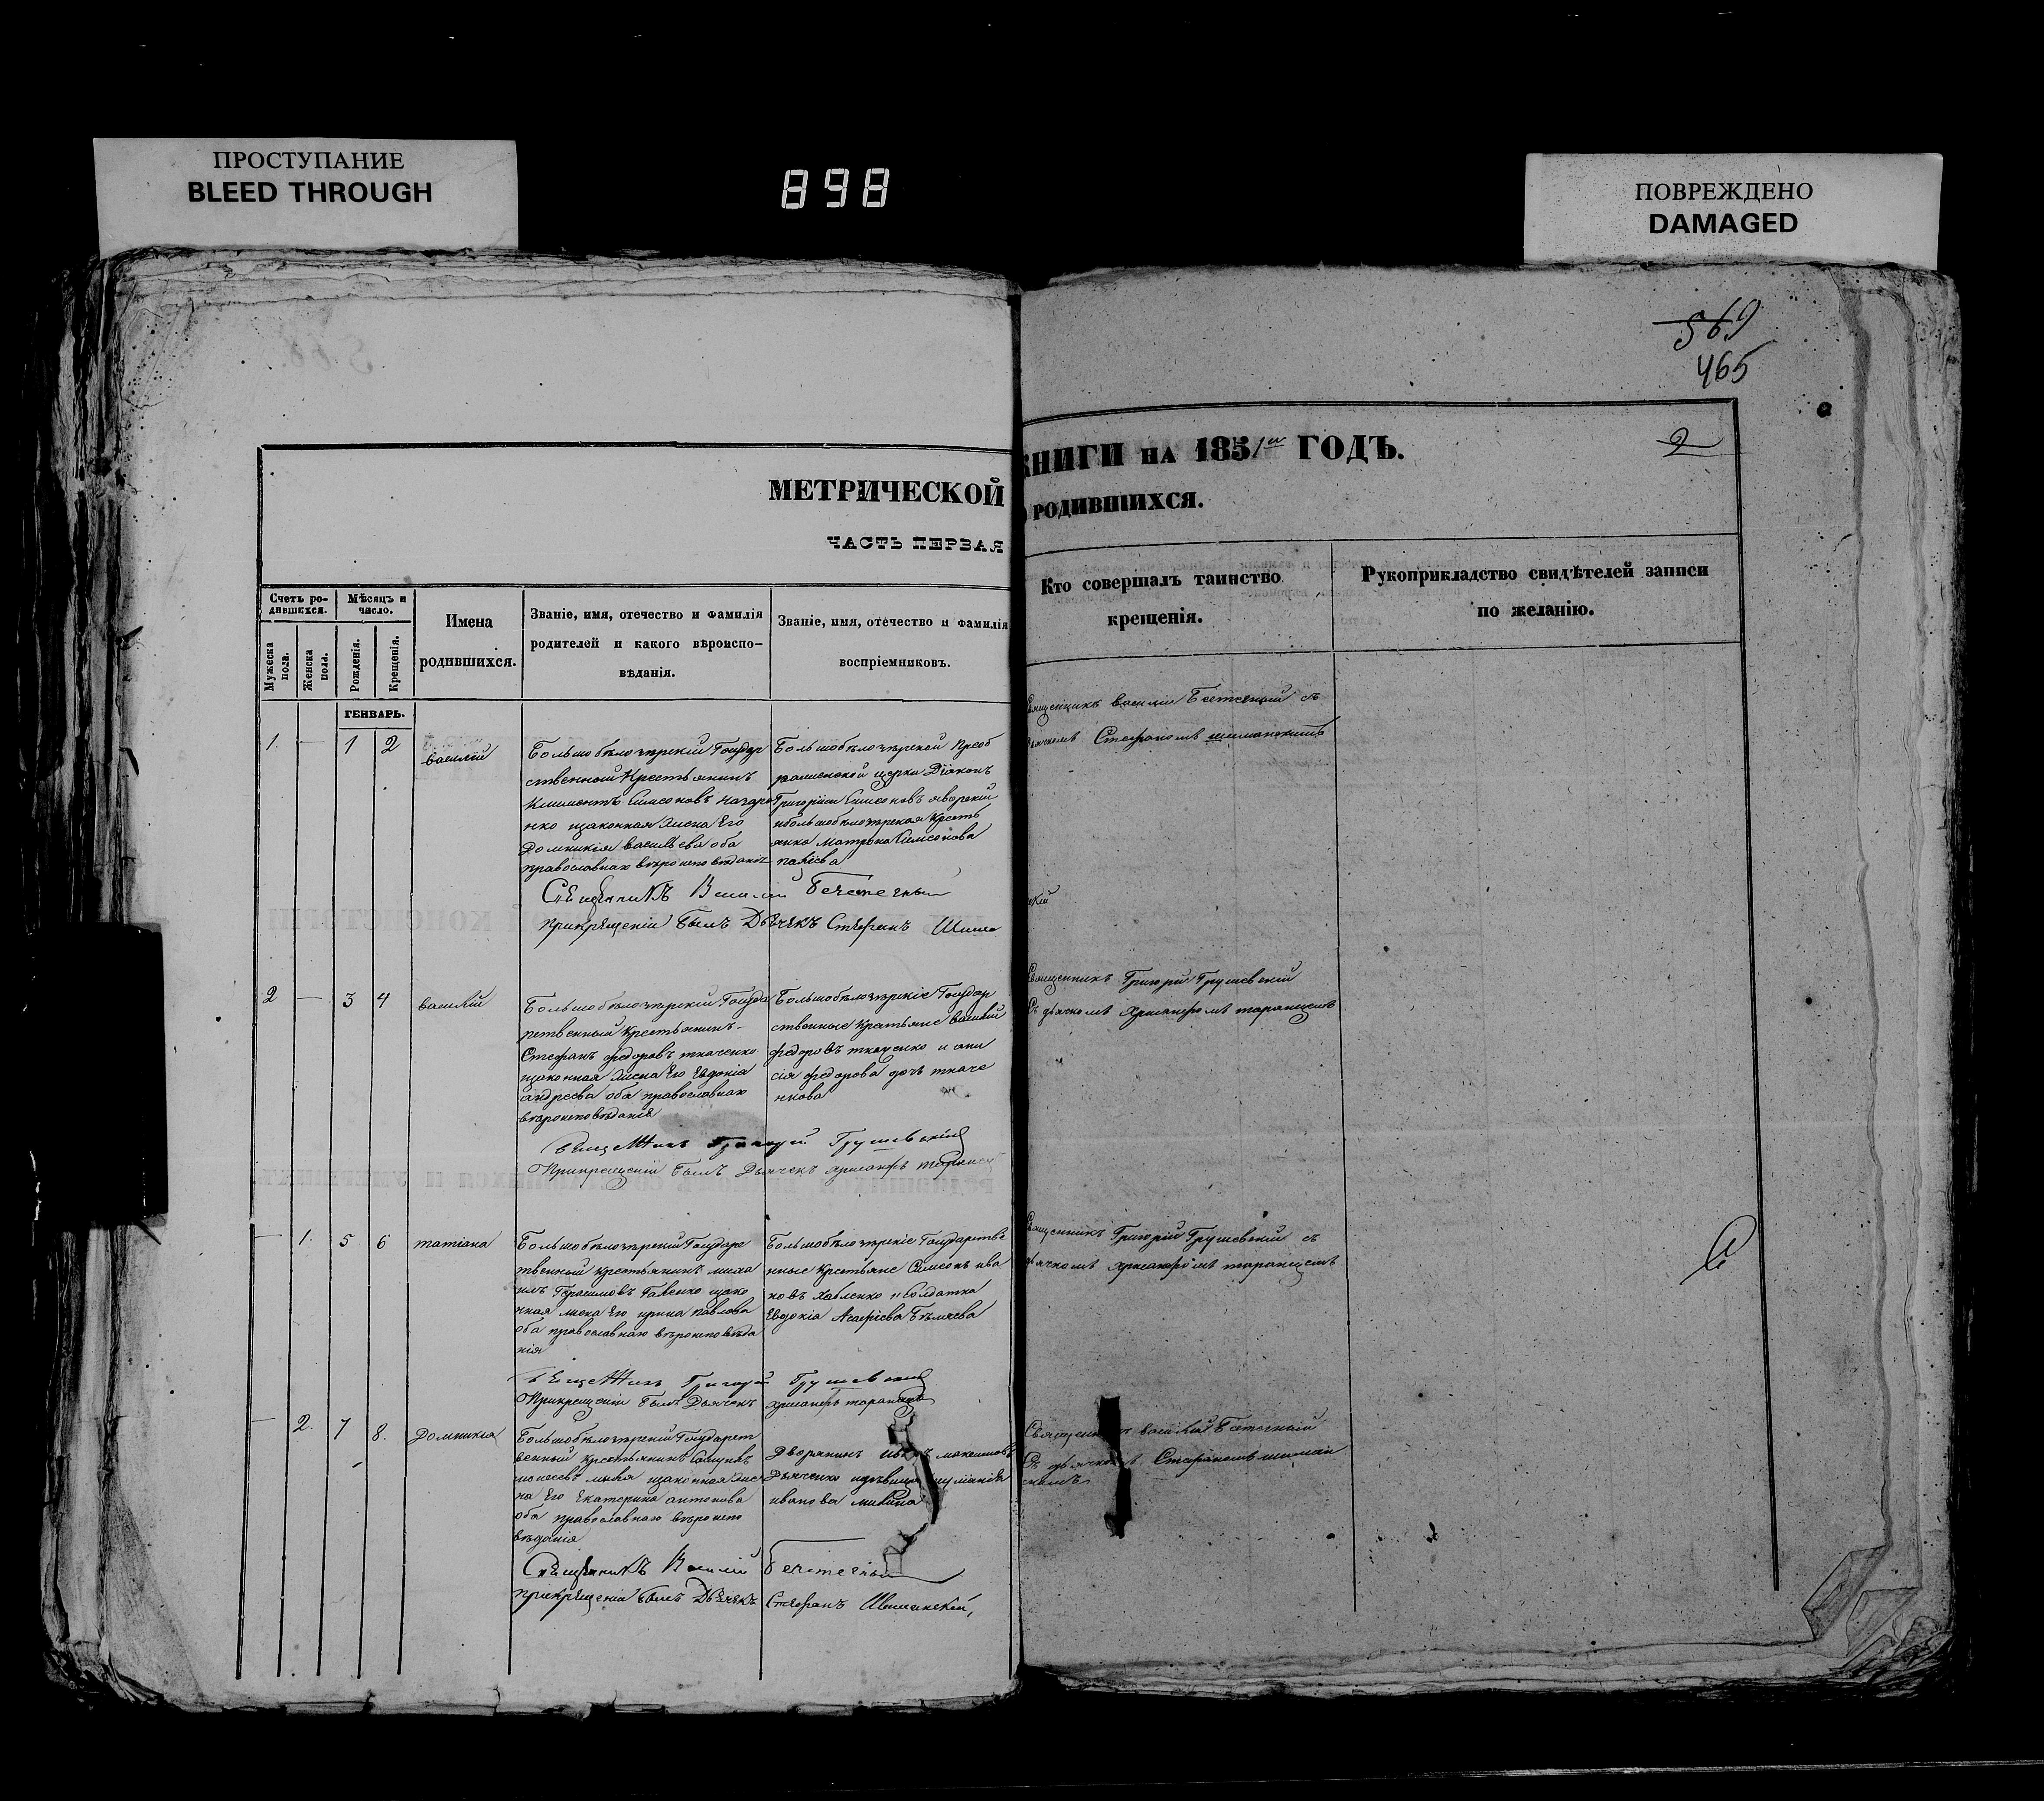 ПРОСТУПАНИЕ
BLEED THROUGH
898
ПОВРЕЖДЕНО
DAMAGED
569
465
2
МЕТРИЧЕСКОЙ
КНИГИ НА 1851го ГОДЪ.
ЧАСТЬ ПЕРВАЯ
О РОДИВШИХСЯ.
Счетъ ро-
дившихся.
Мужеска
пола.
Женска
пола.
Мѣсяцъ и
число.
Рожденія.
Крещенія.
Имена
родившихся.
Званіе, имя, отечество и фамилія
родителей и какого вѣроиспо-
вѣданія.
Званіе, имя, отечество и фамилія
воспріемниковъ.
Кто совершалъ таинство
крещенія.
Рукоприкладство свидѣтелей записи
по желанію.
ГЕНВАРЬ.
1. — 1 2
василій
Большобѣлозерскій Государ
ственный Крестьянинъ
Климентъ Симеоновъ Назаре
нко изаконная жена Его
Домникія васильева оба
православнаго вѣроисповѣданія
Большобѣлозерской Преоб
раженской церкви Діаконъ
Григорій Симеоновъ Яворскій
и большобѣлозерская Кресть
янка Матрона Симеонова
Священникъ василій
дьячкомъ Стефаномъ шиманскимъ
Священникъ Василій
Прикрещеніи былъ Дьячекъ Стефанъ Шиман
скій
2 — 3 4
василій
Большобѣлозерскій Госуда
рственный Крестьянинъ
Стефанъ федоровъ ткаченко
изаконная жена Его Евдокія
андреева оба православнаго
вѣроисповѣданія
Большобѣлозерскіе Государ
ственные Крестьяне василій
федоровъ ткаченко и ани
сія федорова дочь ткаче
нкова
Священникъ Григорій Грушевскій
Съ дьячкомъ Хрисанфомъ таранцемъ
Священникъ Григорій Грушевскій
Прикрещеніи былъ Дьячекъ Хрисанфъ
— 1. 5 6
татіана
Большобѣлозерскій Государс
твенный Крестьянинъ миха
илъ Герасимовъ Гавенко изако
нная жена Его ирина Павлова
оба православнаго вѣроисповѣда
нія
Большобѣлозерскіе Государстве
нные Крестьяне Симеонъ ива
новъ Павленко и Солдатка
Евдокія
Священникъ Григорій Грушевскій съ
дьячкомъ Хрисанфомъ таранцемъ
Священникъ Григорій Грушевскій
Прикрещеніи былъ Дьячекъ Хрисанфъ таранецъ
— 2. 7 8.
Домникія
Большобѣлозерскій Государст
венный крестьянинъ
изаконная же
на Его Екатерина антонова
оба православнаго вѣроиспо
вѣданія
Дворянинъ
Дьяченко идѣвица
иванова
Священникъ василій
Съ дьячкомъ Стефаномъ шиман
скимъ
Священникъ Василій
Прикрещеніи былъ Дьячекъ Стефанъ Шиманскій,